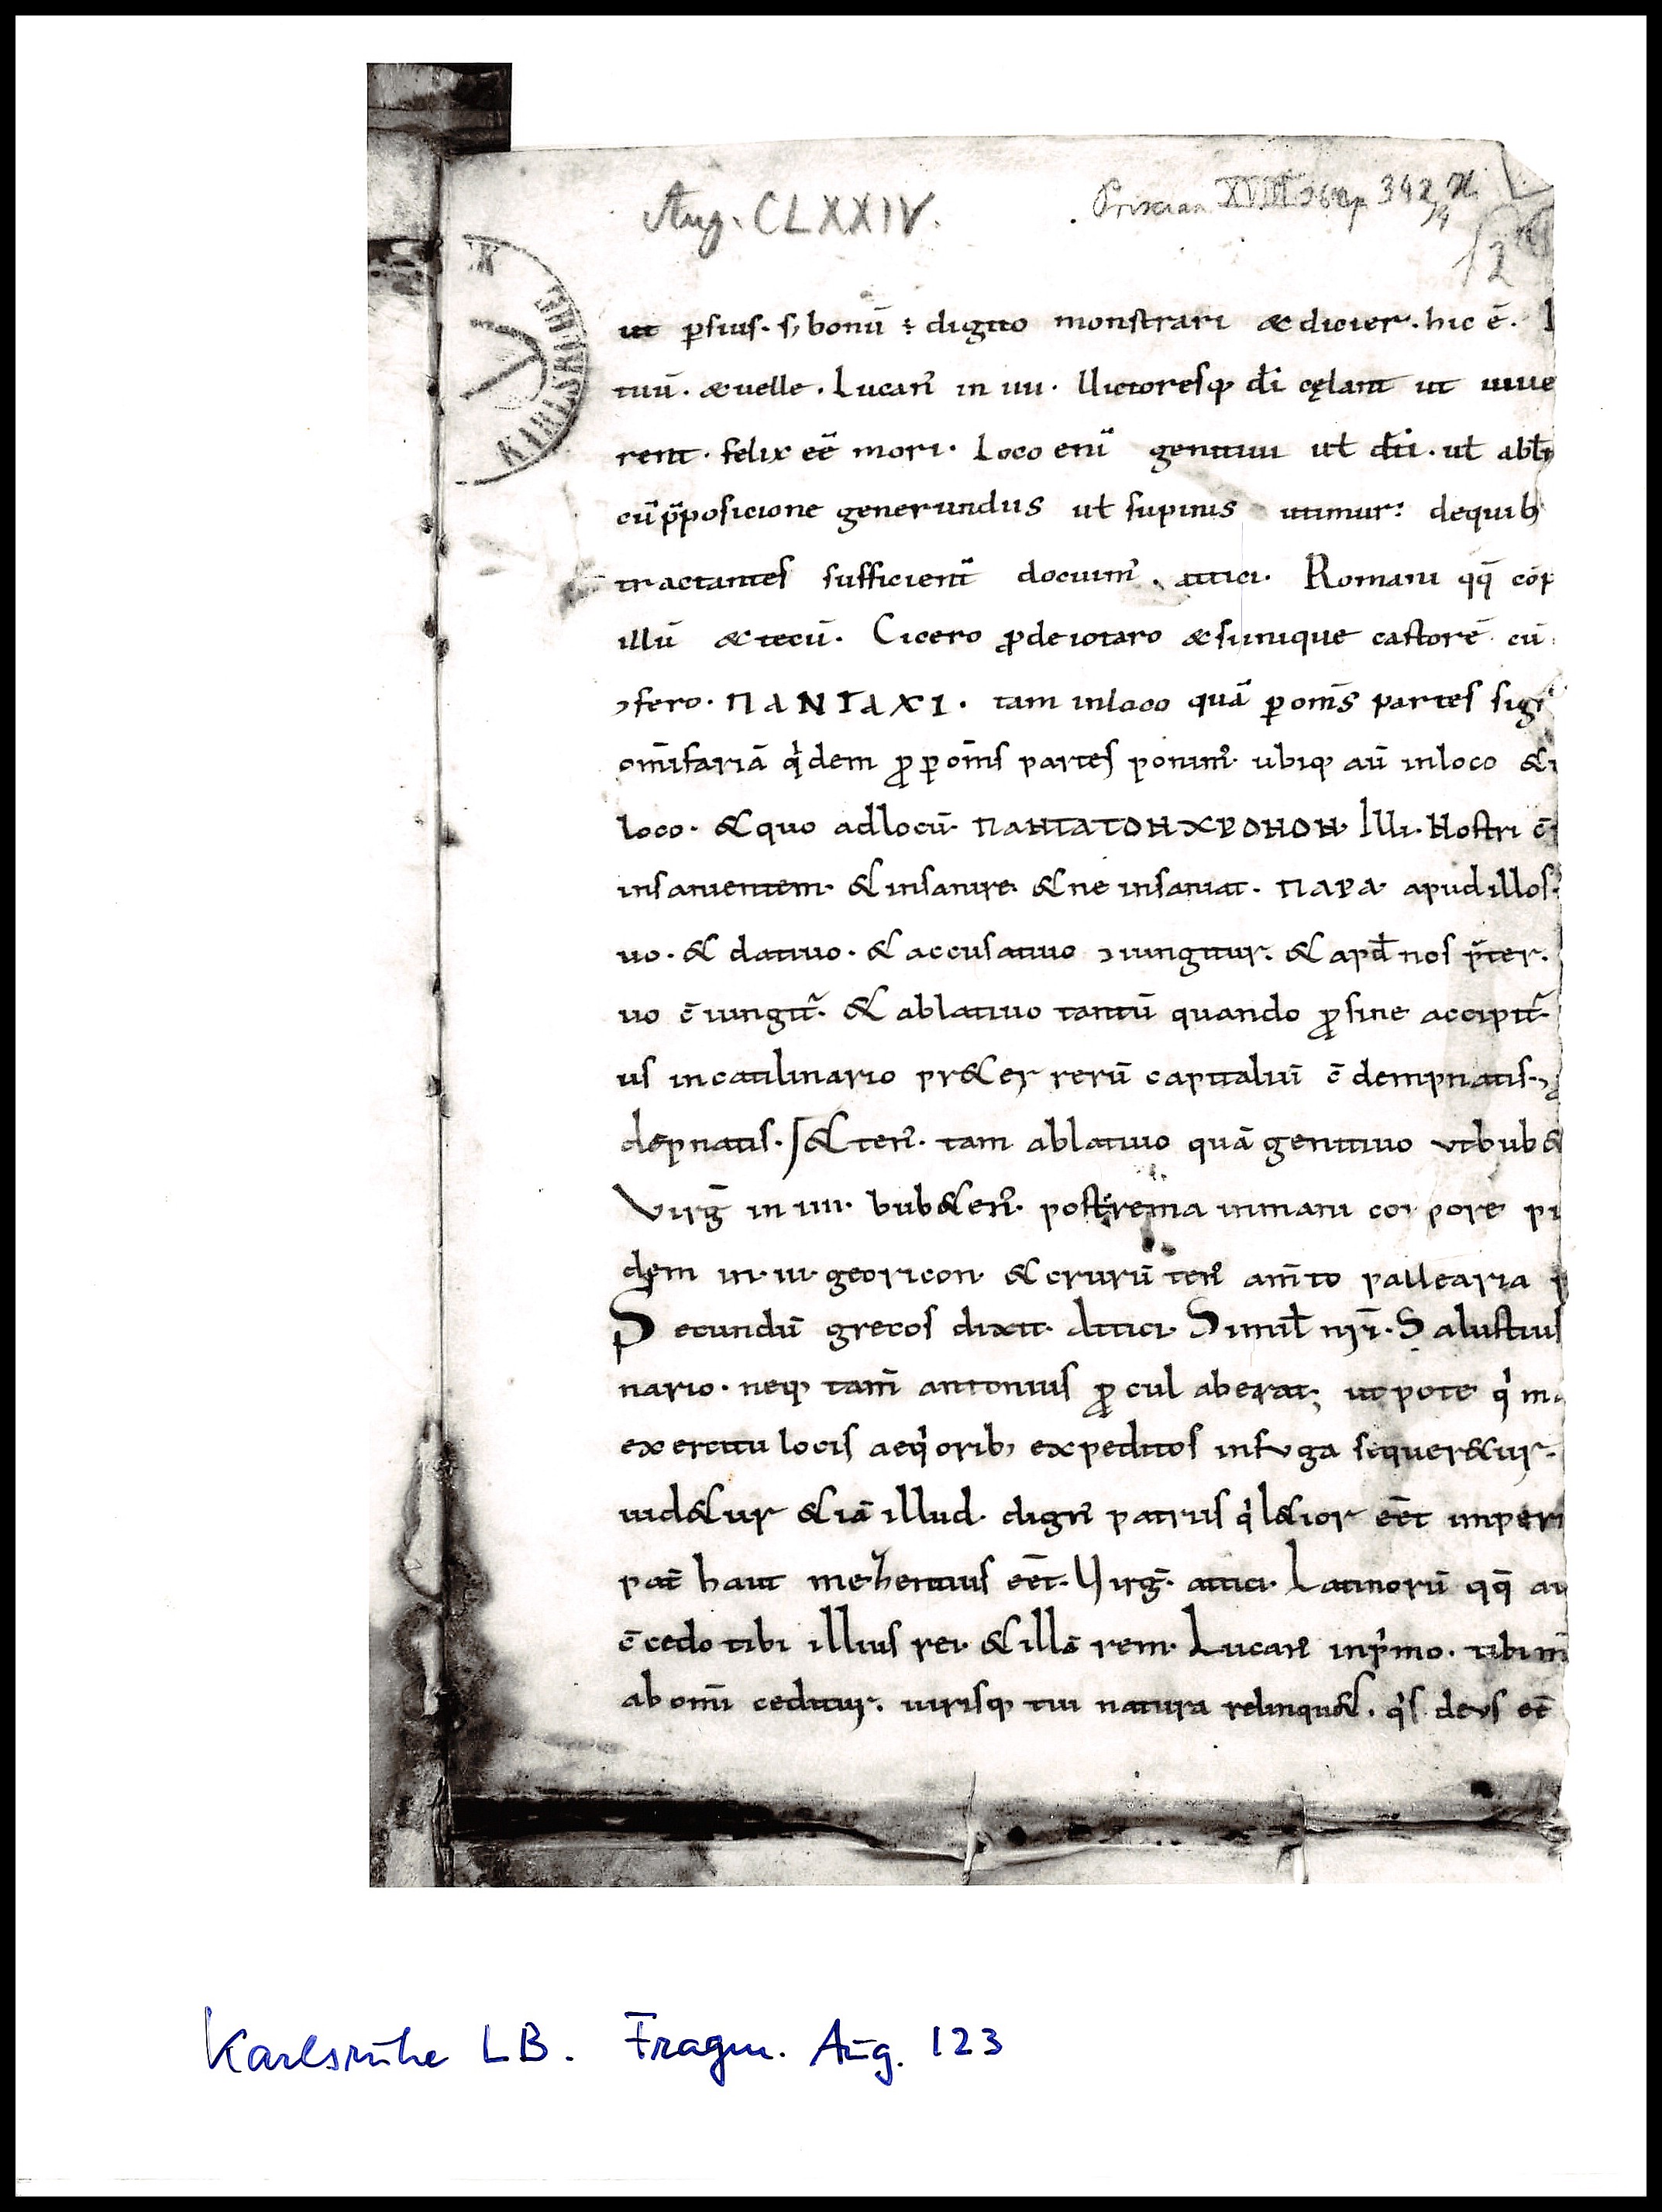 Aug. CLXXIV.
Priscian XVIII
KARLSRUHE
ut ꝑsius. s; bonū ÷ digito monstrari & dicier. hic ē.
tiuū. & uelle. Lucan̄ in iiii. Uictoresq; dī cęlant ut uiue
rent. felix eē mori. Loco enī genitiui uł dti. uł abłti
cū p̄posicione generundiis uł supinis utimur: de quib;
tractantes sufficient̄ docuim̄. attici. Romani qq̄
illū & tecū. Cicero ꝓ deiotaro & simique castorē cū
ↄfero. ΠΑΝΤΑΧΙ. tam in loco quā ꝑ om̄s partes
om̄ifariā q̇dem ꝓ ꝑ om̄s partes ponim̄. ubiq; aū in loco &
loco. & quo ad locū. ΠΑΝΤΑΤΟΝΧΡΟΝΟΝ. Illi. Nostri
insanientem. & insanire. & ne insaniat. ΠΑΡΑ apud illos
uo. & datiuo. & accusatiuo ↄiungitur. & apđ nos p̄ter.
uo c̄iungit̄. & ablatiuo tantū quando ꝓ sine accipit̄.
us in catilinario pr&er rerū capitaliū c̄dempnatis.
dēpnatis. & ten̄. tam ablatiuo quā genitiuo ut bub&
Virḡ in iiii. bub&en̄. postrema inmani corpore pi
dem in. iii. georicon. & crurū ten̄ am̄to pallearia
Secundū grecos dixit. Attici. Similł nr̄i. Salustius
nario. neq; tam̄ antonius ꝓcul aberat; utpote q̇
exercitu locis aeq̇orib; expeditos in fuga sequer&ur.
uid&ur &iā illud. dign̄ patriis q̇ l&ior eēt imperi
pat̄ haut mezentius eēt. Virḡ. attici. Latinorū qq̄ au
c̄cedo tibi illius rei. & illā rem. Lucan̄ in ṗmo. tibi
ab omī ceditur. iurisq; tui natura relinqu&. q̇s deus eē
Karlsruhe LB. Fragm. Aug. 123